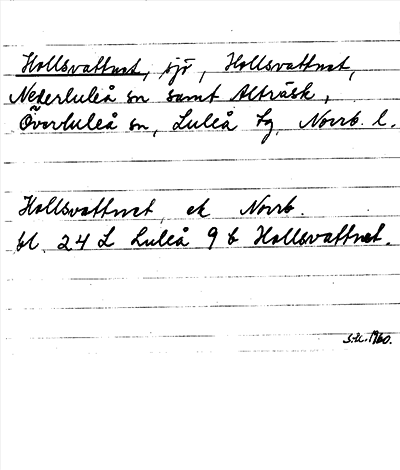 Hollsvattnet, sjö, Hollsvattnet,
Nederluleå sn samt Alträsk,
Överluleå sn, Luleå tg, Norrb. l.
Hollsvattnet ek Norrb.
bl. 24 L Luleå 9 b Hollsvattnet.
S.U. 1960.